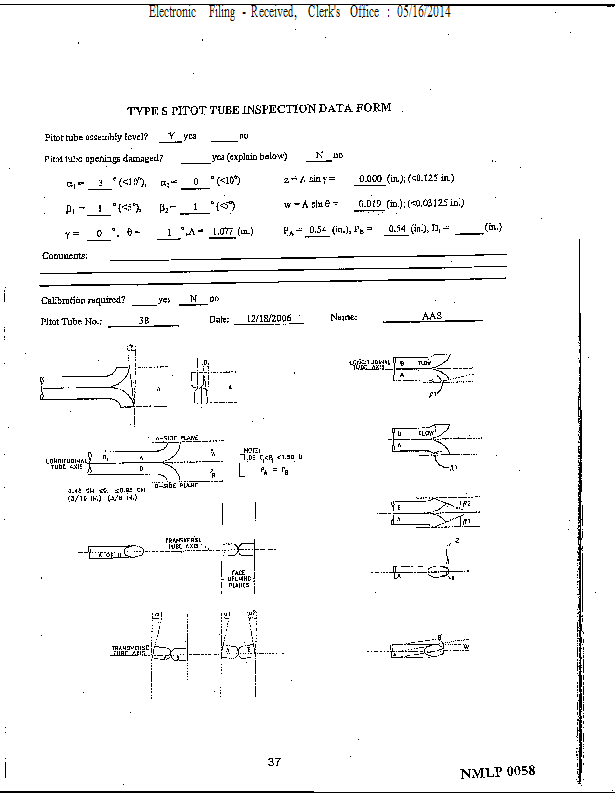 Electronic Filing - Received, Clerk's Office : 05/16/2014
TYPE S PITOT TUBE INSPECTION DATA FORM
Pitot tube assembly level? Y yes no
Pitot tube openings damaged? yes (explain below) N no
α₁ = 3 ° (<10°), α₂ = 0 ° (<10°) z = A sin γ = 0.000 (in.); (<0.125 in.)
β₁ = 1 ° (<5°), β₂ = 1 ° (<5°) w = A sin θ = 0.019 (in.); (<0.03125 in.)
γ = 0 °, θ = 1 °, A = 1.077 (in.) P_A = 0.54 (in.), P_B = 0.54 (in.), D_t = (in.)
Comments:
Calibration required? yes N no
Pitot Tube No.: 3B Date: 12/18/2006 Name: AAS
LONGITUDINAL
TUBE AXIS
B FLOW
A
β1
A
A-SIDE PLANE
LONGITUDINAL
TUBE AXIS
A
B
B-SIDE PLANE
NOTE:
P_A = P_B
(3/16 IN.) (3/8 IN.)
B FLOW
A
β1
B
A
β2
β1
TRANSVERSE
TUBE AXIS
A OR B
FACE
OPENING
PLANES
Z
A
TRANSVERSE
TUBE AXIS
A B
W
37
NMLP 0058